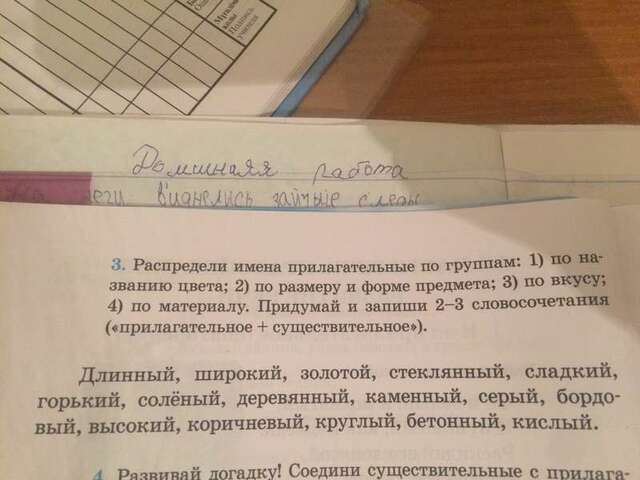 Домашняя работа
виднелись заячьие следы
3. Распредели имена прилагательные по группам: 1) по на-
званию цвета; 2) по размеру и форме предмета; 3) по вкусу;
4) по материалу. Придумай и запиши 2–3 словосочетания
(«прилагательное + существительное»).
Длинный, широкий, золотой, стеклянный, сладкий,
горький, солёный, деревянный, каменный, серый, бордо-
вый, высокий, коричневый, круглый, бетонный, кислый.
4. Развивай догадку! Соедини существительные с прилага-